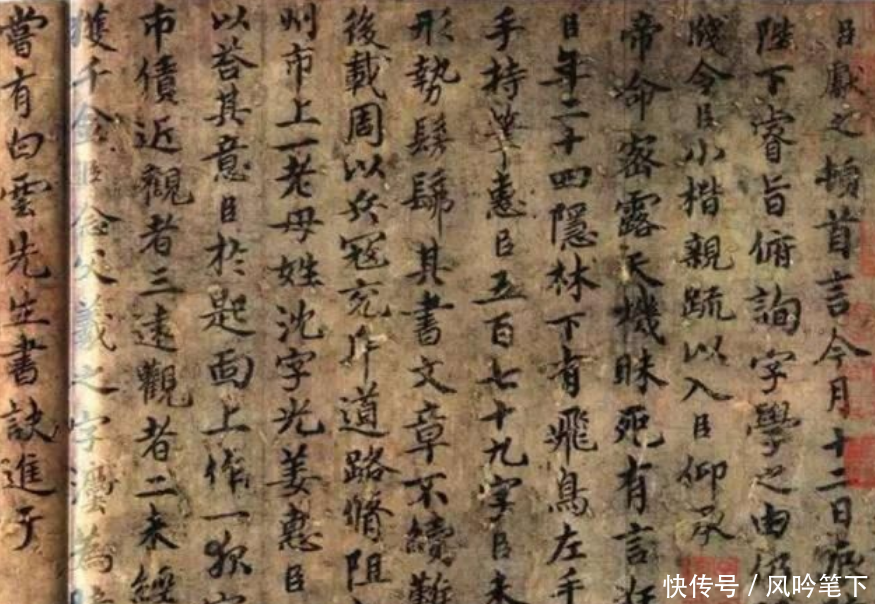 臣獻之頓首言今月十二日
陛下睿旨俯詢字學之由仍
牋令臣小楷親疏以入臣仰承
帝命密露天機昧死有言
臣年二十四隱林下有飛鳥左手
手持筆惠臣五百七十九字臣未
形勢髣髴其書文章不續難
後載周以兵寇充斥道路脩阻
州市上一老母姓沈字光姜惠臣
以荅其意臣於匙面上作一夜
市債近觀者三遠觀者二未經
獲千金臣念父羲之字法為
嘗有白雲先生書訣進于
快传号 / 风吟笔下